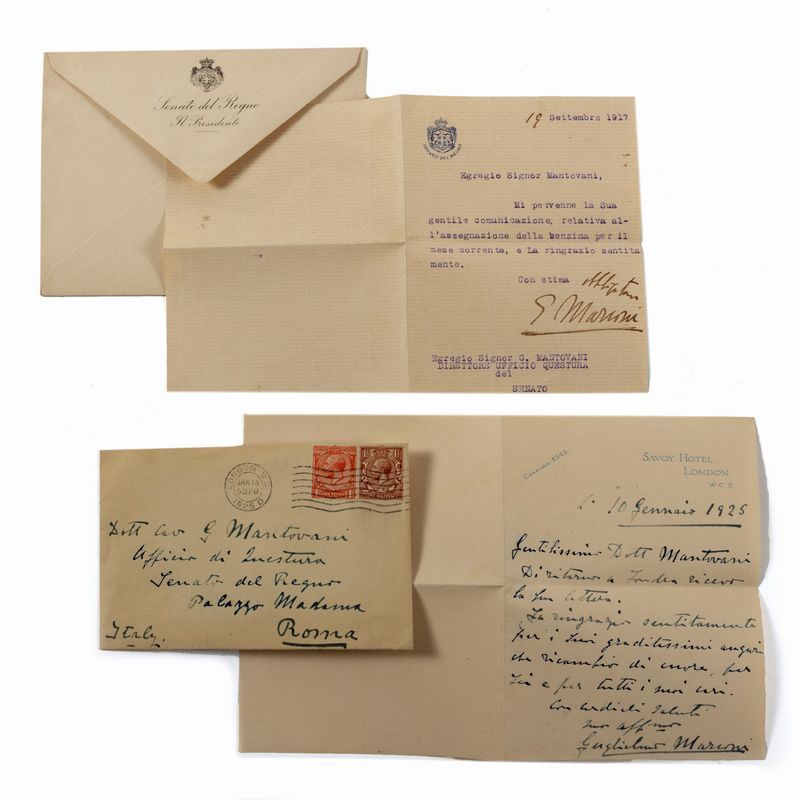 Senato del Regno
Il Presidente
SENATO DEL REGNO
19 Settembre 1917
Egregio Signor Mantovani,
Mi pervenne la Sua
gentile comunicazione, relativa al-
l'assegnazione della benzina per il
mese corrente, e La ringrazio sentita
mente.
Con stima
G Marconi
Egregio Signor G. MANTOVANI
DIRETTORE UFFICIO QUESTURA
del
SENATO
LONDON W.C.
JAN 13
1925
Dott Cav G Mantovani
Ufficio di Questura
Senato del Regno
Palazzo Madama
Roma
Italy.
GERRARD 4343.
SAVOY HOTEL.
LONDON.
W.C.2
10 Gennaio 1925
Gentilissimo Dott Mantovani
Di ritorno a Londra ricevo
la Sua lettera.
La ringrazio sentitamente
per i Suoi graditissimi auguri
che ricambio di cuore, per
Lei e per tutti i suoi cari.
Con cordiali saluti
suo affmo
Guglielmo Marconi